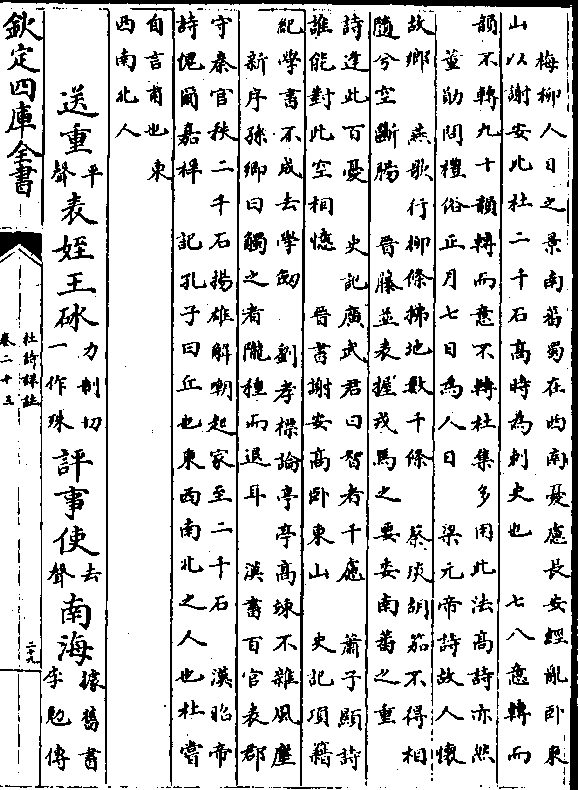 梅柳人日之景南蕃蜀在西南憂慮長安經亂卧東
山以謝安比杜二千石高時為刺史也　七八意轉而
韻不轉九十韻轉而意不轉杜集多用此法高詩亦然
董勛問禮俗正月七日為人日　梁元帝詩故人懷
故鄉　燕歌行柳條拂地數千條　蔡琰胡笳不得相
隨兮空斷腸　晉滕並表握戎馬之要委南蕃之重
詩逢此百憂　史記廣武君曰智者千慮　蕭子顯詩
誰能對此空相憶　晉書謝安高卧東山　史記項籍
紀學書不成去學劒　劉孝標論亭亭高竦不雜風塵
新序孫卿曰觸之者隴種而退耳　漢書百官表郡
守秦官秩二千石揚雄解嘲起家至二千石　漢昭帝
詩愧爾嘉祥　記孔子曰丘也東西南北之人也杜嘗
自言甫也東
西南北人
送重平聲表姪王砅力制切一作珠評事使去聲南海據舊書李勉傳
欽定四庫全書
杜詩詳註
卷二十三
二十九